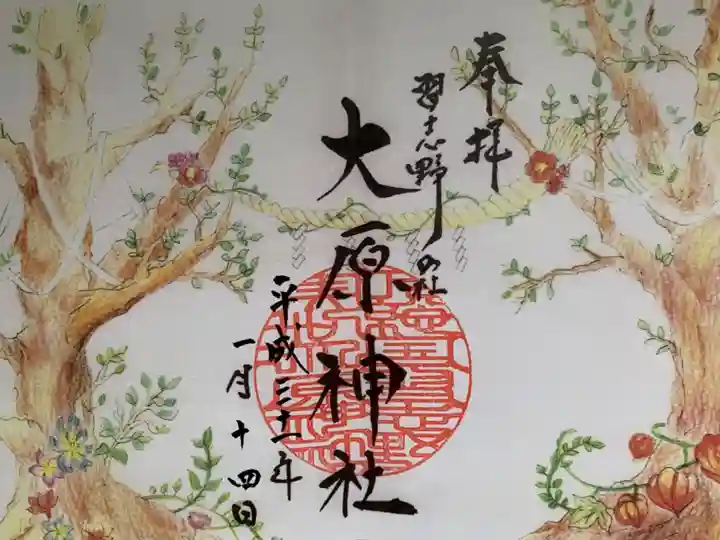 奉拝
習志野の社
大原神社
平成三十一年
一月十四日